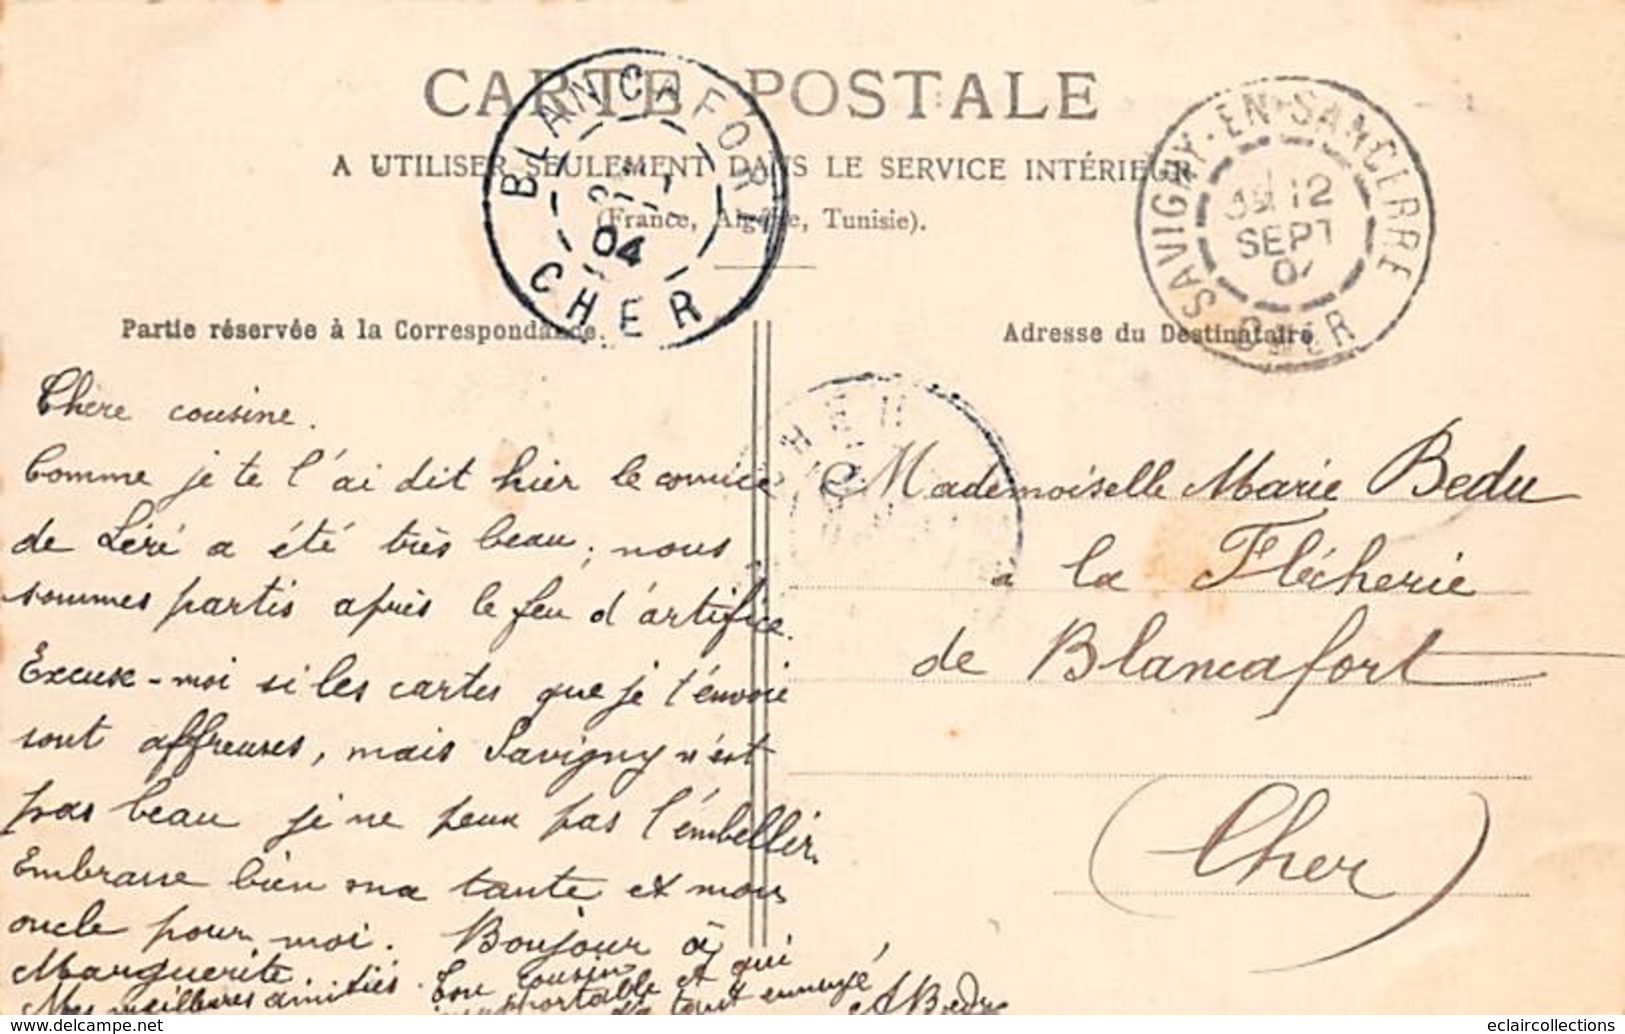 CARTE POSTALE
A UTILISER SEULEMENT DANS LE SERVICE INTÉRIEUR
(France, Algérie, Tunisie).
BLANCAFORT
04
CHER
SAVIGNY-EN-SANCERRE
12
SEPT
CHER
Partie réservée à la Correspondance.
Adresse du Destinataire
Chère cousine.
Comme je te l'ai dit hier le comice
de Léré a été très beau; nous
sommes partis après le feu d'artifice.
Excuse-moi si les cartes que je t'envoie
sont affreuses, mais Savigny n'est
pas beau je ne peux pas l'embellir.
Embrasse bien ma tante et mon
oncle pour moi. Bonjour à
Marguerite
Mes meilleures amitiés. Ton cousin
insupportable et qui
t'a tant ennuyé
A Bedu
Mademoiselle Marie Bedu
a la Flécherie
de Blancafort
(Cher)
eclaircollections
www.delcampe.net